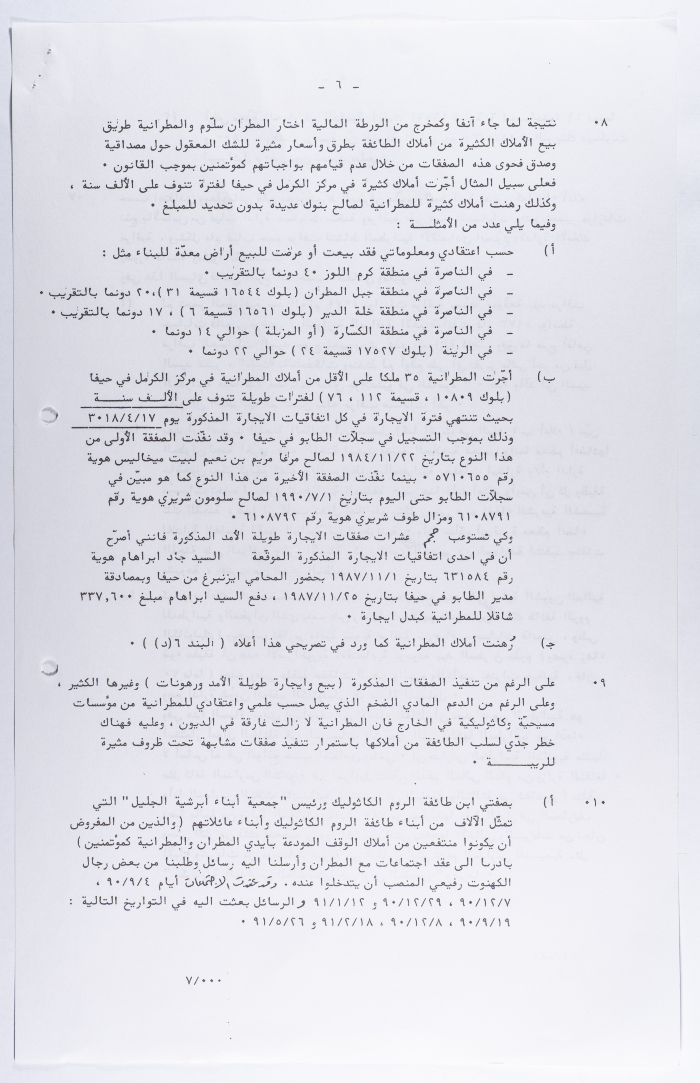 - ٦ -
٠٨ نتيجة لما جاء آنفا وكمخرج من الورطة المالية اختار المطران سلّوم والمطرانية طريق
بيع الأملاك الكثيرة من أملاك الطائفة بطرق وأسعار مثيرة للشك المعقول حول مصداقية
وصدق فحوى هذه الصفقات من خلال عدم قيامهم بواجباتهم كمؤتمنين بموجب القانون ٠
فعلى سبيل المثال أجّرت أملاك كثيرة في مركز الكرمل في حيفا لفترة تنوف على الألف سنة ،
وكذلك رهنت أملاك كثيرة للمطرانية لصالح بنوك عديدة بدون تحديد للمبلغ ٠
وفيما يلي عدد من الأمثلـــة :
أ) حسب اعتقادي ومعلوماتي فقد بيعت أو عرضت للبيع أراض معدّة للبناء مثل :
ـ في الناصرة في منطقة كرم اللوز ٤٠ دونما بالتقريب ٠
ـ في الناصرة في منطقة جبل المطران (بلوك ١٦٥٤٤ قسيمة ٣١)،٢٠ دونما بالتقريب ٠
ـ في الناصرة في منطقة خلة الدير (بلوك ١٦٥٦١ قسيمة ٦) ، ١٧ دونما بالتقريب ٠
ـ في الناصرة في منطقة الكسّارة ( أو المزبلة ) حوالي ١٤ دونما ٠
ـ في الرينة (بلوك ١٧٥٢٧ قسيمة ٢٤) حوالي ٢٢ دونما ٠
ب) أجّرت المطرانية ٣٥ ملكا على الأقل من أملاك المطرانية في مركز الكرمل في حيفا
(بلوك ١٠٨٠٩ ، قسيمة ١١٢ ، ٧٦ ) لفترات طويلة تنوف على الألـف سنــــة
بحيث تنتهي فترة الايجارة في كل اتفاقيات الايجارة المذكورة يوم ٣٠١٨/٤/١٧
وذلك بموجب التسجيل في سجلات الطابو في حيفا ٠ وقد نفّذت الصفقة الأولى من
هذا النوع بتاريخ ١٩٨٤/١١/٢٢ لصالح مرغا مريم بن نعيم لبيت ميخاليس هوية
رقم ٥٧١٠٦٥٥ ٠ بينما نفّذت الصفقة الأخيرة من هذا النوع كما هو مبيّن في
سجلات الطابو حتى اليوم بتاريخ ١٩٩٠/٧/١ لصالح سلومون شريزي هوية رقم
٦١٠٨٧٩١ ومزال طوف شريزي هوية رقم ٦١٠٨٧٩٢ ٠
وكي نستوعب حجم عشرات صفقات الايجارة طويلة الأمد المذكورة فانني أصرّح
أن في احدى اتفاقيات الايجارة المذكورة الموقّعة السيد جاد ابراهام هوية
رقم ٦٣١٥٨٤ بتاريخ ١٩٨٧/١١/١ بحضور المحامي ايزنبرغ من حيفا وبمصادقة
مدير الطابو في حيفا بتاريخ ١٩٨٧/١١/٢٥ ، دفع السيد ابراهام مبلغ ٣٣٧,٦٠٠
شاقلا للمطرانية كبدل ايجارة ٠
ج) رُهنت أملاك المطرانية كما ورد في تصريحي هذا أعلاه ( البند ٦(د) ) ٠
٠٩ على الرغم من تنفيذ الصفقات المذكورة ( بيع وايجارة طويلة الأمد ورهونات ) وغيرها الكثير ،
وعلى الرغم من الدعم المادي الضخم الذي يصل حسب علمي واعتقادي للمطرانية من مؤسسات
مسيحيّة وكاثوليكية في الخارج فان المطرانية لا زالت غارقة في الديون ، وعليه فهناك
خطر جدّي لسلب الطائفة من أملاكها باستمرار تنفيذ صفقات مشابهة تحت ظروف مثيرة
للريبــــــة ٠
٠١٠ أ) بصفتي ابن طائفة الروم الكاثوليك ورئيس "جمعية أبناء أبرشية الجليل" التي
تمثّل الآلاف من أبناء طائفة الروم الكاثوليك وأبناء عائلاتهم (والذين من المفروض
أن يكونوا منتفعين من أملاك الوقف المودعة بأيدي المطران والمطرانية كمؤتمنين)
بادرنا الى عقد اجتماعات مع المطران وأرسلنا اليه رسائل وطلبنا من بعض رجال
الكهنوت رفيعي المنصب أن يتدخلوا عنده. وقد عقدت الاجتماعات أيام ٩٠/٩/٤ ،
٩٠/١٢/٧ ، ٩٠/١٢/٢٩ و ٩١/١/١٢ والرسائل بعثت اليه في التواريخ التالية :
٩٠/٩/١٩ ، ٩٠/١٢/٨ ، ٩١/٢/١٨ و ٩١/٥/٢٦ ٠
٧/٠٠٠